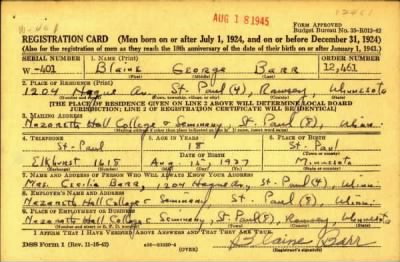 12461
AUG 18 1945
FORM APPROVED
Budget Bureau No. 33-R012-42
REGISTRATION CARD (Men born on or after July 1, 1924, and on or before December 31, 1924)
(Also for the registration of men as they reach the 18th anniversary of the date of their birth on or after January 1, 1943.)
SERIAL NUMBER 1. NAME (Print) ORDER NUMBER
W-401 Blaine George Barr 12,461
(First) (Middle) (Last)
2. PLACE OF RESIDENCE (Print)
1204 Hague Av. St. Paul (4), Ramsey, Minnesota
[THE PLACE OF RESIDENCE GIVEN ON LINE 2 ABOVE WILL DETERMINE LOCAL BOARD
JURISDICTION; LINE 2 OF REGISTRATION CERTIFICATE WILL BE IDENTICAL]
3. MAILING ADDRESS
Nazareth Hall College & Seminary St. Paul (8), Minn.
4. TELEPHONE 5. AGE IN YEARS 6. PLACE OF BIRTH
St. Paul 18 St. Paul
DATE OF BIRTH
Elkhurst 1618 Aug. 1927 Minnesota
7. NAME AND ADDRESS OF PERSON WHO WILL ALWAYS KNOW YOUR ADDRESS
Mrs. Cecilia Barr, 1204 Hague Av., St. Paul (4), Minn.
8. EMPLOYER'S NAME AND ADDRESS
Nazareth Hall College & Seminary St. Paul (8), Minn.
9. PLACE OF EMPLOYMENT OR BUSINESS
Nazareth Hall College & Seminary, St. Paul (8), Ramsey, Minnesota
I AFFIRM THAT I HAVE VERIFIED ABOVE ANSWERS AND THAT THEY ARE TRUE.
DSS Form 1 (Rev. 11-16-42) (OVER) Blaine Barr